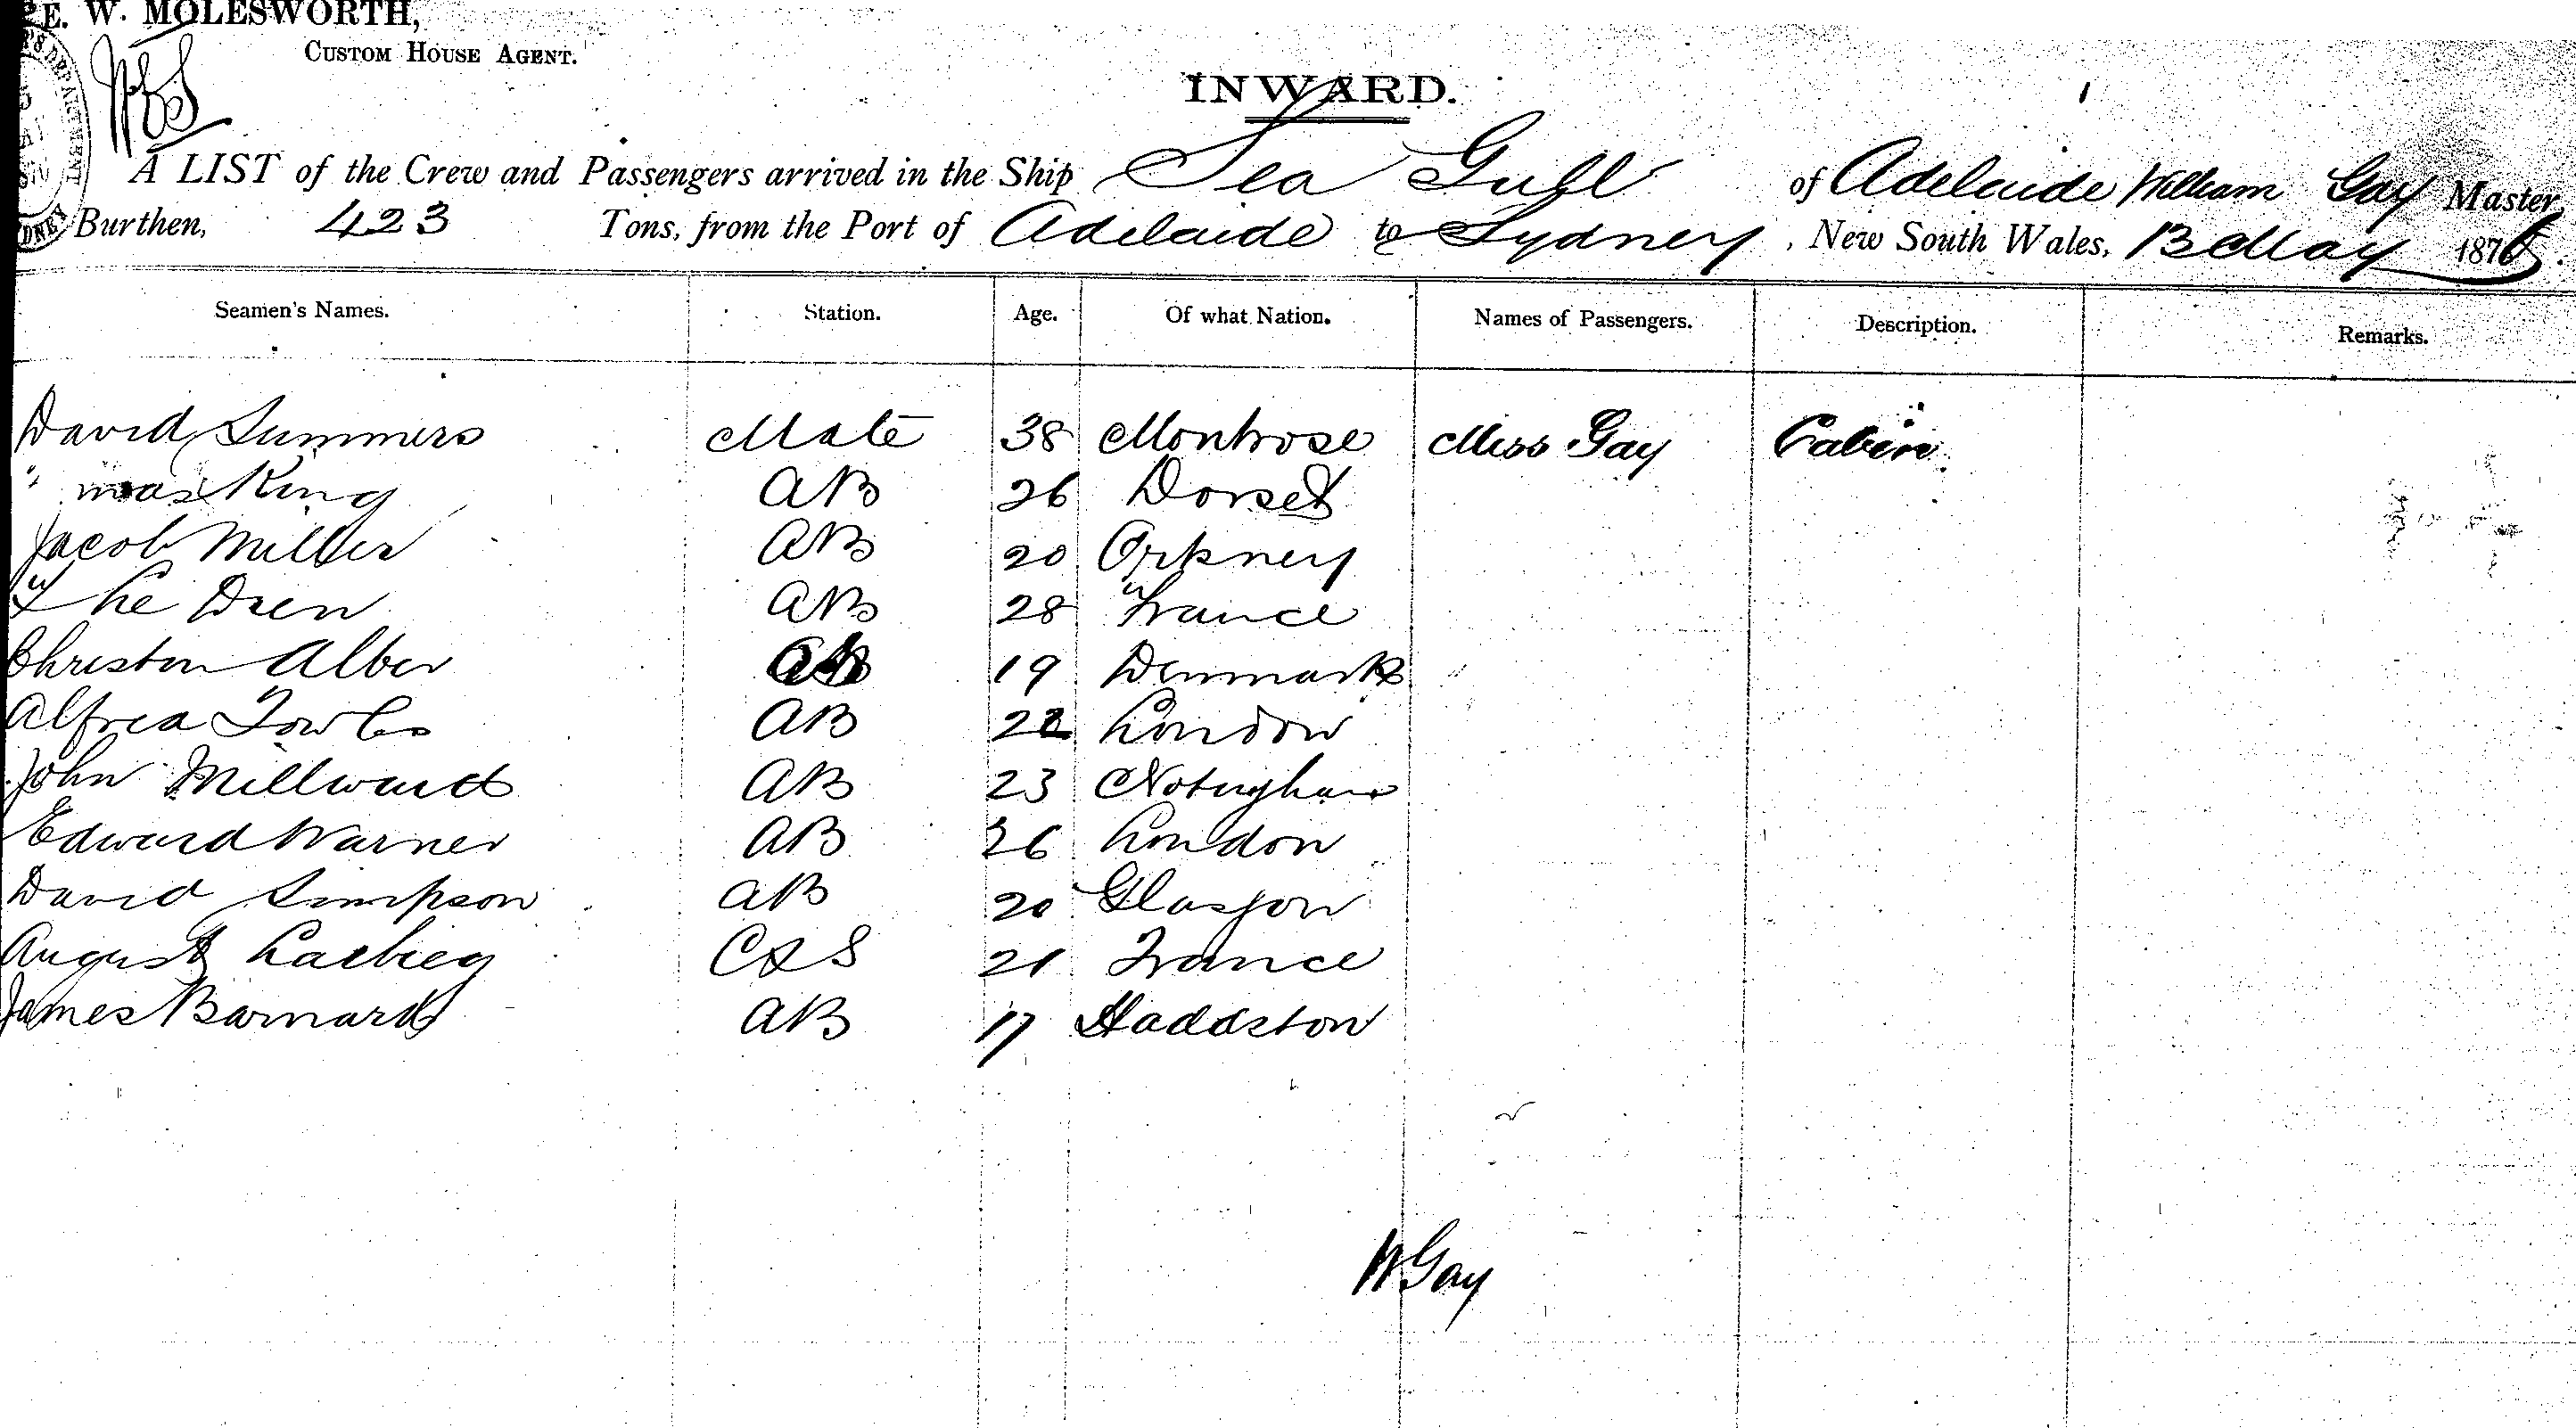 E. W. MOLESWORTH,
CUSTOM HOUSE AGENT.
INWARD.
A LIST of the Crew and Passengers arrived in the Ship Sea Gull of Adelaide William Gay Master
Burthen, 423 Tons, from the Port of Adelaide to Sydney, New South Wales, 13 May 1876.
Seamen's Names. Station. Age. Of what Nation. Names of Passengers. Description. Remarks.
David Summers Mate 38 Montrose Miss Gay Cabin
King AB 26 Dorset
Jacob Miller AB 20 Orkney
Le Dren AB 28 France
Christen Alber AB 19 Denmark
Alfred Towles AB 22 London
John Millward AB 23 Notingham
Edward Warner AB 26 London
David Simpson AB 20 Glasgow
August C&S 21 France
James Barnard AB 17 Haddston
W Gay